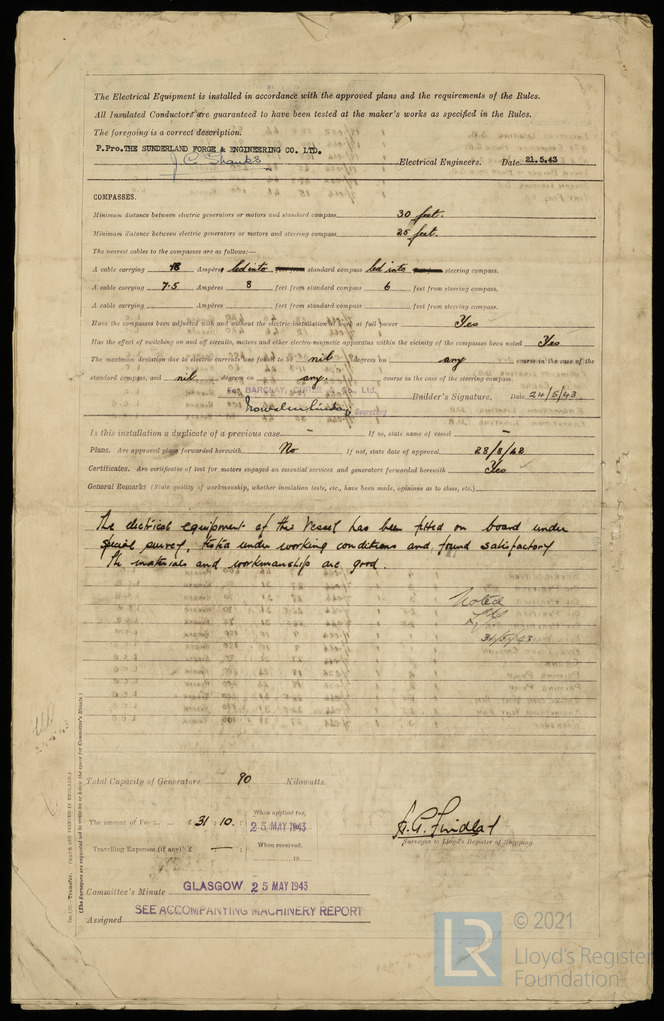 The Electrical Equipment is installed in accordance with the approved plans and the requirements of the Rules.
All Insulated Conductors are guaranteed to have been tested at the maker's works as specified in the Rules.
The foregoing is a correct description.
P.Pro.THE SUNDERLAND FORGE & ENGINEERING CO. LTD.
J. C. Shanks Electrical Engineers. Date 21.5.43
COMPASSES.
Minimum distance between electric generators or motors and standard compass 30 feet.
Minimum distance between electric generators or motors and steering compass 25 feet.
The nearest cables to the compasses are as follows:—
A cable carrying Ampères led into standard compass led into steering compass.
A cable carrying 7.5 Ampères 8 feet from standard compass 6 feet from steering compass.
A cable carrying Ampères feet from standard compass feet from steering compass.
Have the compasses been adjusted with and without the electric installation at work at full power Yes
Has the effect of switching on and off circuits, motors and other electro-magnetic apparatus within the vicinity of the compasses been noted Yes
The maximum deviation due to electric currents was found to be nil degrees on any course in the case of the
standard compass, and nil degrees on any course in the case of the steering compass.
For BARCLAY, & Co. Ltd.
Secretary Builder's Signature. Date 24/5/43
Is this installation a duplicate of a previous case – If so, state name of vessel –
Plans. Are approved plans forwarded herewith No If not, state date of approval 28/8/42
Certificates. Are certificates of test for motors engaged on essential services and generators forwarded herewith Yes
General Remarks (State quality of workmanship, whether insulation tests, etc., have been made, opinions as to class, etc.)
The electrical equipment of this Vessel has been fitted on board under
Special survey, tested under working conditions and found satisfactory
The materials and workmanship are good.
Noted
31/5/43
Total Capacity of Generators 90 Kilowatts.
The amount of Fee £ 31 : 10 : When applied for, 25 MAY 1943
Travelling Expenses (if any) £ — : : When received, 19
A. G. Findlat
Surveyor to Lloyd's Register of Shipping.
Committee's Minute GLASGOW 25 MAY 1943
Assigned SEE ACCOMPANYING MACHINERY REPORT
Transfer.
(The Surveyors are requested not to write on or below the space for Committee's Minute.)
LR
© 2021
Lloyd's Register
Foundation